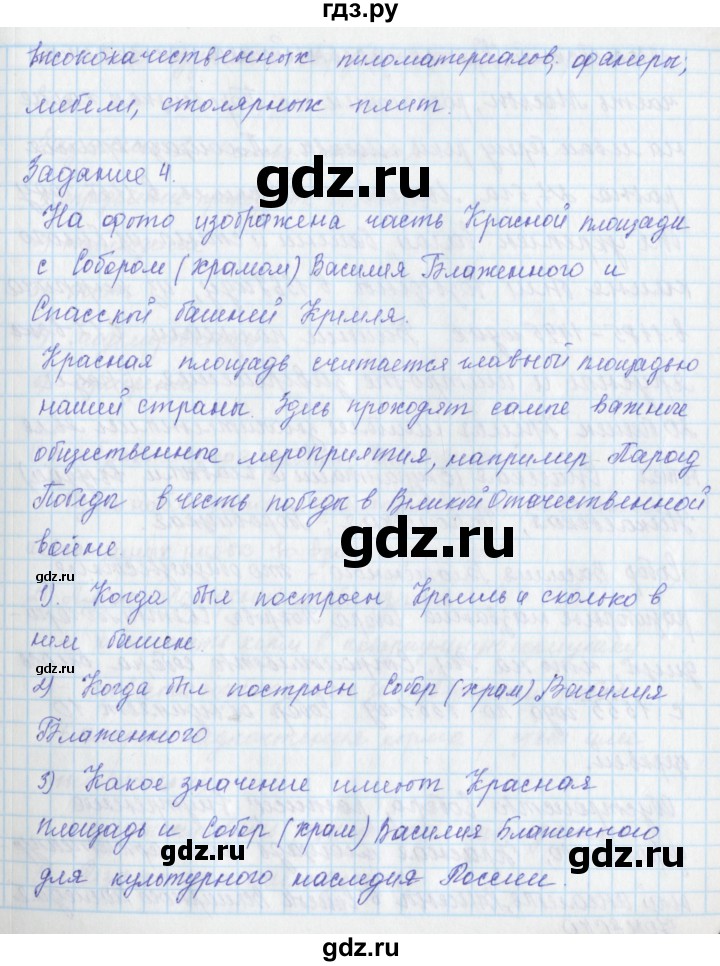 гдз.ру
высококачественных пиломатериалов, фанеры,
мебели, столярных плит.
gdz.ru
Задание 4.
На фото изображена часть Красной площади
с Собором (храмом) Василия Блаженного и
Спасской башней Кремля.
gdz.ru
Красная площадь считается главной площадью
нашей страны. Здесь проходят самые важные
общественные мероприятия, например Парад
Победы в честь победы в Великой Отечественной
войне.
gdz.ru
gdz.ru
1). Когда был построен Кремль и сколько в
gdz.ru
нем башен.
gdz.ru
2) Когда был построен Собор (храм) Василия
Блаженного
3) Какое значение имеют Красная
площадь и Собор (храм) Василия Блаженного
gdz.ru
для культурного наследия России.
gdz.ru
gdz.ru